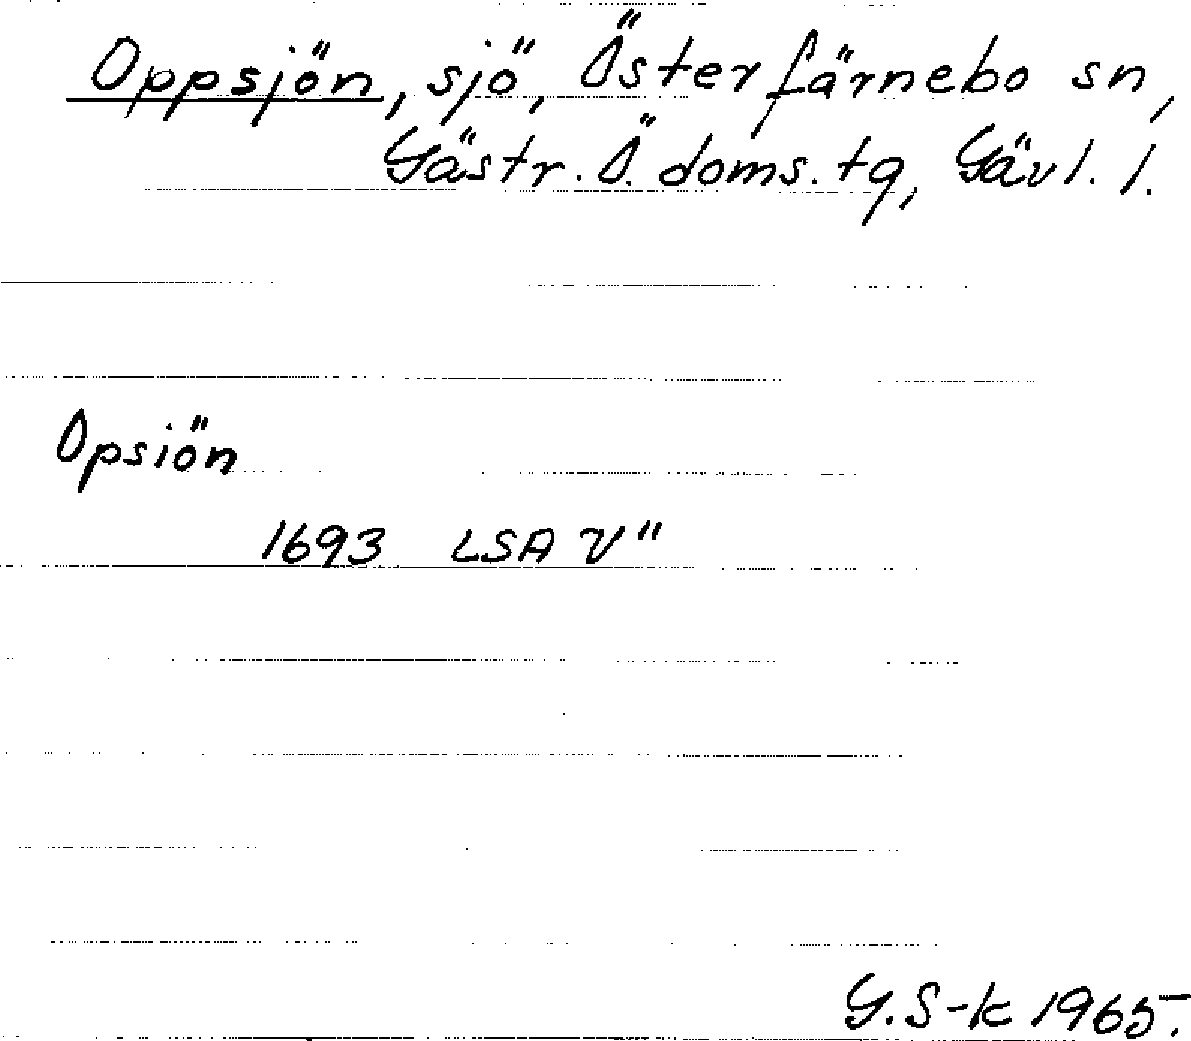 Oppsjön, sjö, Österfärnebo sn,
Gästr. Ö. doms. tg, Gävl. l.
Opsiön
1693 LSA V"
G. S-k 1965.